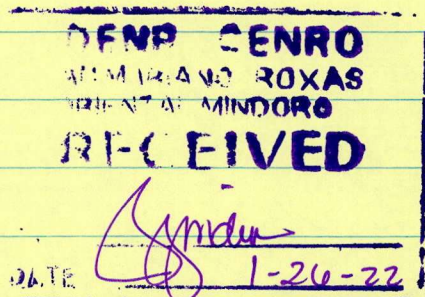 DENR CENRO
ROXAS
ORIENTAL MINDORO
RECEIVED
DATE 1-26-22